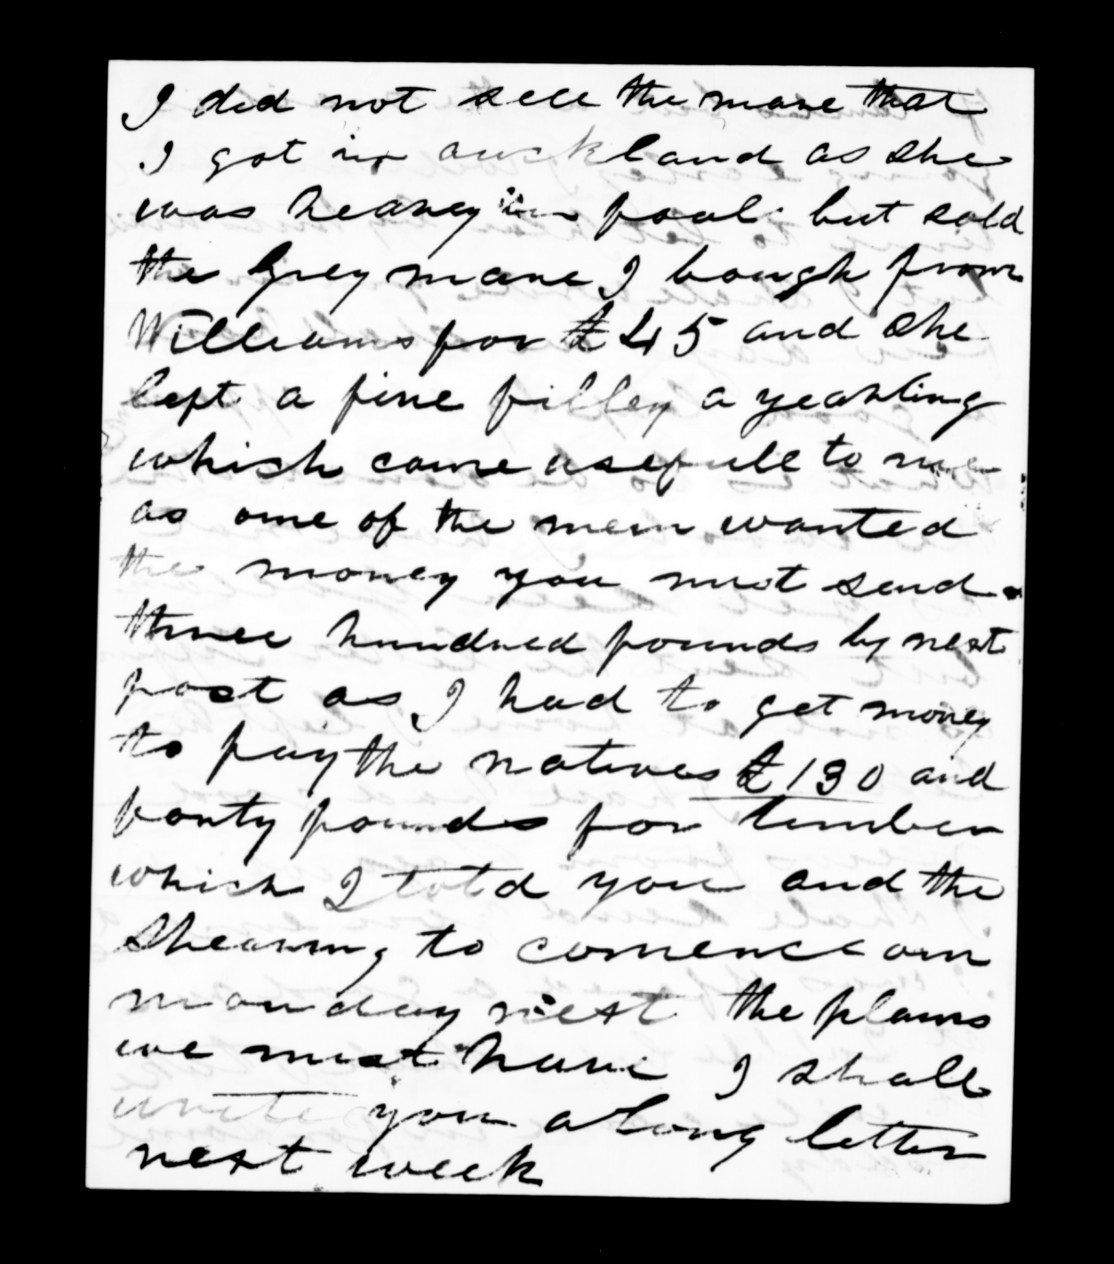 I did not sell the mare that
I got in auckland as she
was heavey in foal but sold
the Grey mare I bough from
Williams for £45 and she
left a fine filley a yearling
which came usefull to me
as one of the men wanted
the money you must send
three hundred pounds by next
post as I had to get money
to pay the natives £130 and
forty pounds for timber
which I told you and the
Shearing to comence on
monday next the plans
we must have I shall
write you along letter
next week